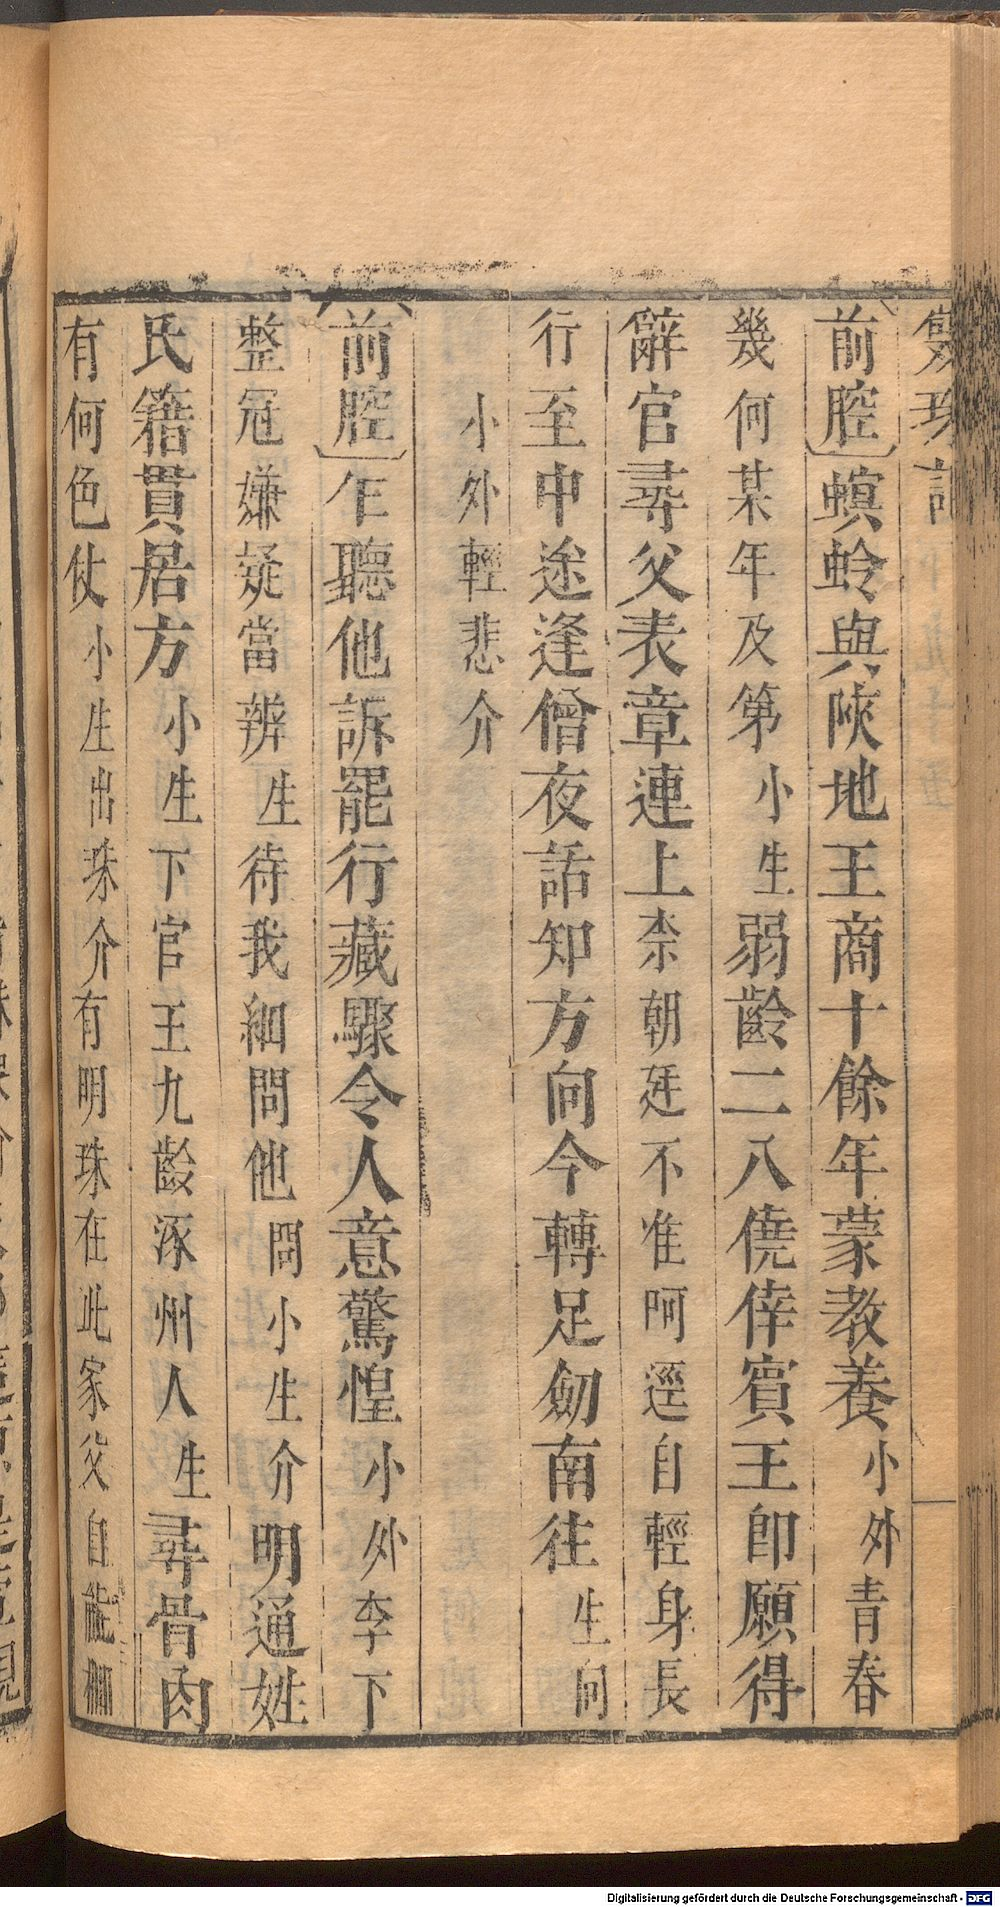 珠記
前腔螟蛉與陝地王商十餘年蒙教養小外青春
幾何某年及第小生弱齡二八僥倖賓王卽願得
辭官尋父表章連上柰朝廷不准呵逕自輕身長
行至中途逢僧夜話知方向今轉足劒南往生向
小外輕悲介
前腔乍聽他訴罷行藏驟令人意驚惶小外李下
整冠嫌疑當辨生待我細問他問小生介明通姓
氏籍貫居方小生下官王九齡涿州人生尋骨肉
有何色仗小生出珠介有明珠在此家父自能
Digitalisierung gefördert durch die Deutsche Forschungsgemeinschaft - DFG